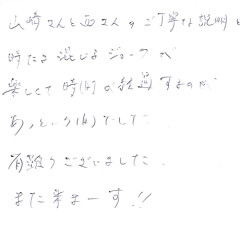 山崎さんと西さんのご丁寧な説明と
時たま混じるジョークが
楽しくて時間が経過するのが
あっという間でした。
有難うございました。
また来まーす!!